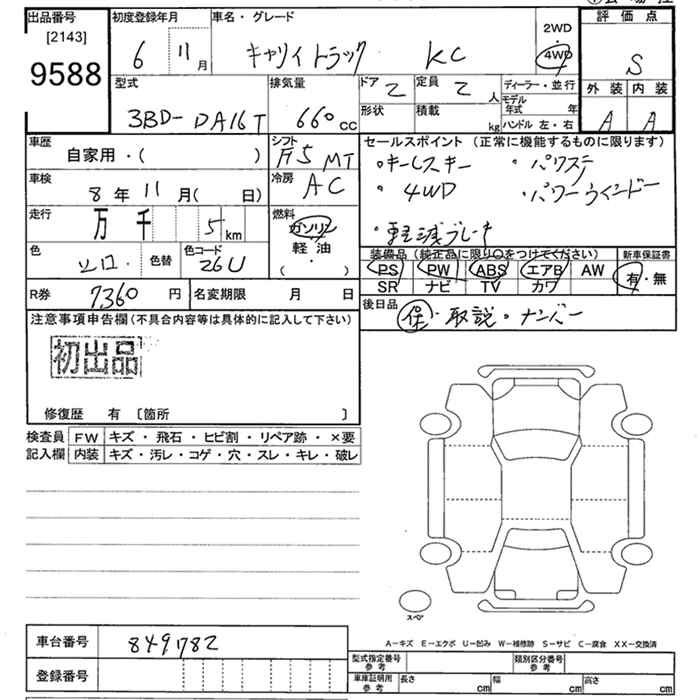 出品番号 初度登録年月 車名・グレード 2WD・4WD 評価点
[2143]
9588 6 11月 キャリイトラック KC S
型式 排気量 ドア 2 定員 2人 ディーラー・並行 外装 内装
3BD-DA16T 660cc 形状 積載 kg モデル年式 年 A A
ハンドル 左・右
車歴 シフト セールスポイント (正常に機能するものに限ります)
自家用・( ) F5 MT ・キーレスキー ・パワステ
車検 冷房 ・4WD ・パワーウインドー
8年11月( 日) AC
走行 燃料 ・軽減ブレーキ
万 千 5km ガソリン
軽油
( ・ )
色 色替 色コード 装備品 (純正品に限り○をつけてください) 新車保証書
シロ 26U PS PW ABS エアB AW 有・無
SR ナビ TV カワ
R券 7360円 名変期限 月 日 後日品
保・取説・ナンバー
注意事項申告欄(不具合内容等は具体的に記入して下さい)
初出品
修復歴 有 [箇所 ]
検査員 FW キズ・飛石・ヒビ割・リペア跡・×要
記入欄 内装 キズ・汚レ・コゲ・穴・スレ・キレ・破レ
スペア
車台番号 849782
A-キズ E-エクボ U-凹み W-補修跡 S-サビ C-腐食 XX-交換済
登録番号
型式指定番号 参考 類別区分番号 参考
車庫証明用 参考 長さ cm 幅 cm 高さ cm